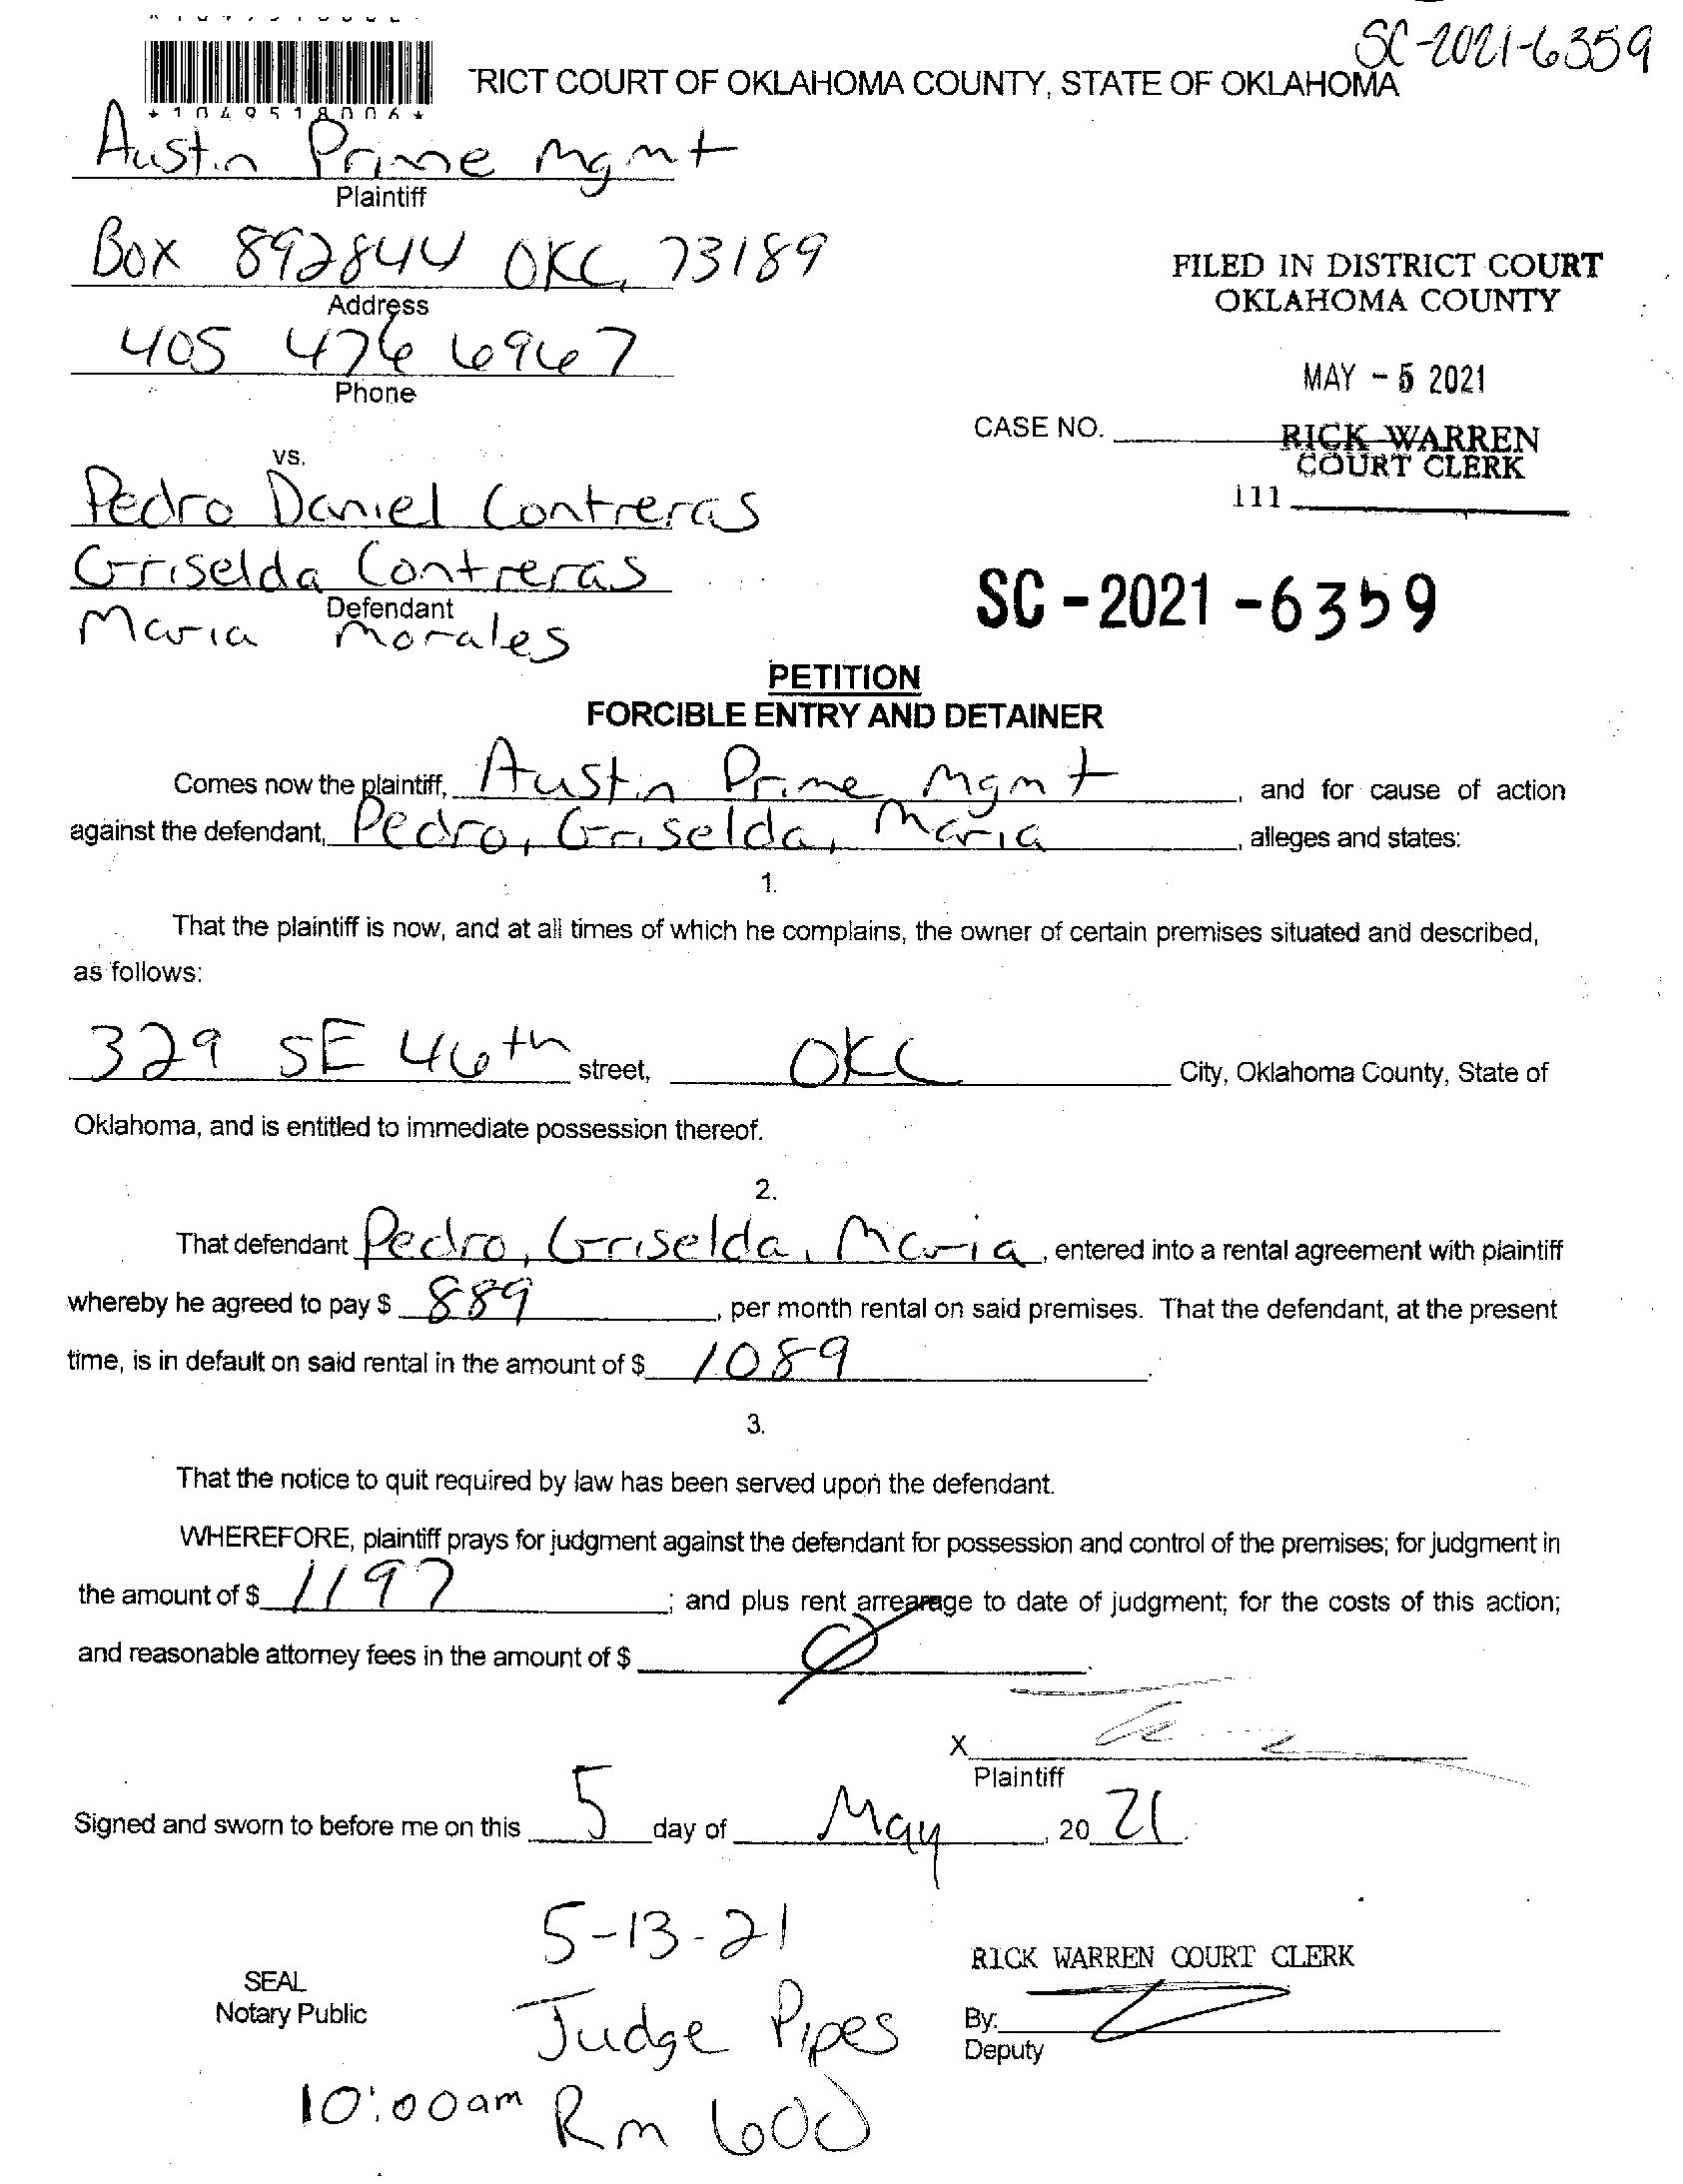 SC-2021-6359
*1049518006*
RICT COURT OF OKLAHOMA COUNTY, STATE OF OKLAHOMA
Austin Prime Mgmt
Plaintiff
Box 892844 OKC, 73189
Address
405 476 6967
Phone
FILED IN DISTRICT COURT
OKLAHOMA COUNTY
MAY - 5 2021
CASE NO.
RICK WARREN
COURT CLERK
111
vs.
Pedro Daniel Contreras
Griselda Contreras
Defendant
Maria Morales
SC-2021-6359
PETITION
FORCIBLE ENTRY AND DETAINER
Comes now the plaintiff, Austin Prime Mgmt, and for cause of action
against the defendant, Pedro, Griselda, Maria, alleges and states:
1.
That the plaintiff is now, and at all times of which he complains, the owner of certain premises situated and described,
as follows:
329 SE 46th street, OKC City, Oklahoma County, State of
Oklahoma, and is entitled to immediate possession thereof.
2.
That defendant Pedro, Griselda, Maria, entered into a rental agreement with plaintiff
whereby he agreed to pay $ 889, per month rental on said premises. That the defendant, at the present
time, is in default on said rental in the amount of $ 1089.
3.
That the notice to quit required by law has been served upon the defendant.
WHEREFORE, plaintiff prays for judgment against the defendant for possession and control of the premises; for judgment in
the amount of $ 1197; and plus rent arrearage to date of judgment; for the costs of this action;
and reasonable attorney fees in the amount of $ Ø.
X
Plaintiff
Signed and sworn to before me on this 5 day of May, 20 21.
5-13-21
RICK WARREN COURT CLERK
SEAL
Notary Public
Judge Pipes
By:
Deputy
10:00am Rm 600